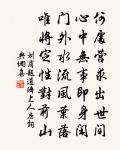 何處營求出世間
心中無事即身閑
門外水流風葉落
唯將定性對前山
劉商題道濟上人房詞
典壩集